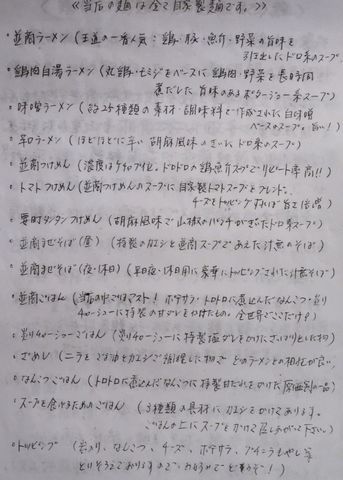 《当店の麺は全て自家製麺です。》
ラーメン (王道の一番人気:鶏・豚・魚介・野菜の旨味を
引き出したドロ系のスープ)
鶏肉白湯ラーメン (丸鶏・モミジをベースに鶏肉・野菜を長時間
煮だした旨味のあるポタージュ系スープ)
味噌ラーメン (25種類の素材・調味料で作成された白味噌
ベースのスープ。旨い!)
辛口ラーメン (ほどほどに辛い胡麻風味のきいたドロ系スープ)
つけめん (濃度はケタ ドロドロの鶏魚介スープでリピート率高!!)
トマトつけめん (つけめんのスープに自家製トマトスープをブレンド、
チーズをトッピングすれば旨さ倍増)
タンタンつけめん (胡麻風味で山椒のパンチがきいたドロ系スープ)
まぜそば(昼) (特製のカエシとスープであえた汁無のそば)
まぜそば(夜・休日) (平日夜・休日用に豪華にトッピングされた汁無そば)
ごはん (当店の中ではマスト! ポテサラ・トロトロに煮込んだなんこつ・炙り
チャーシューに特製の甘ダレをかけたもの。全世界でここだけ!)
炙りチャーシューごはん (炙りチャーシューに特製塩ダレをかけたさっぱりした物)
(ニラをごま油とカエシで調理した物 どのラーメンとの相性が良い)
なんこつごはん (トロトロに煮込んだなんこつに特製甘だれをかけた原価割の一品)
スープを食べるためのごはん (3種類の具材にカエシをかけてあります。
ごはんの上にスープをかけて召しあがって下さい。)
トッピング (炙り、なんこつ、チーズ、ポテサラ、プチニラもやし等
とりそろえておりますので、お好みでどうぞ!)